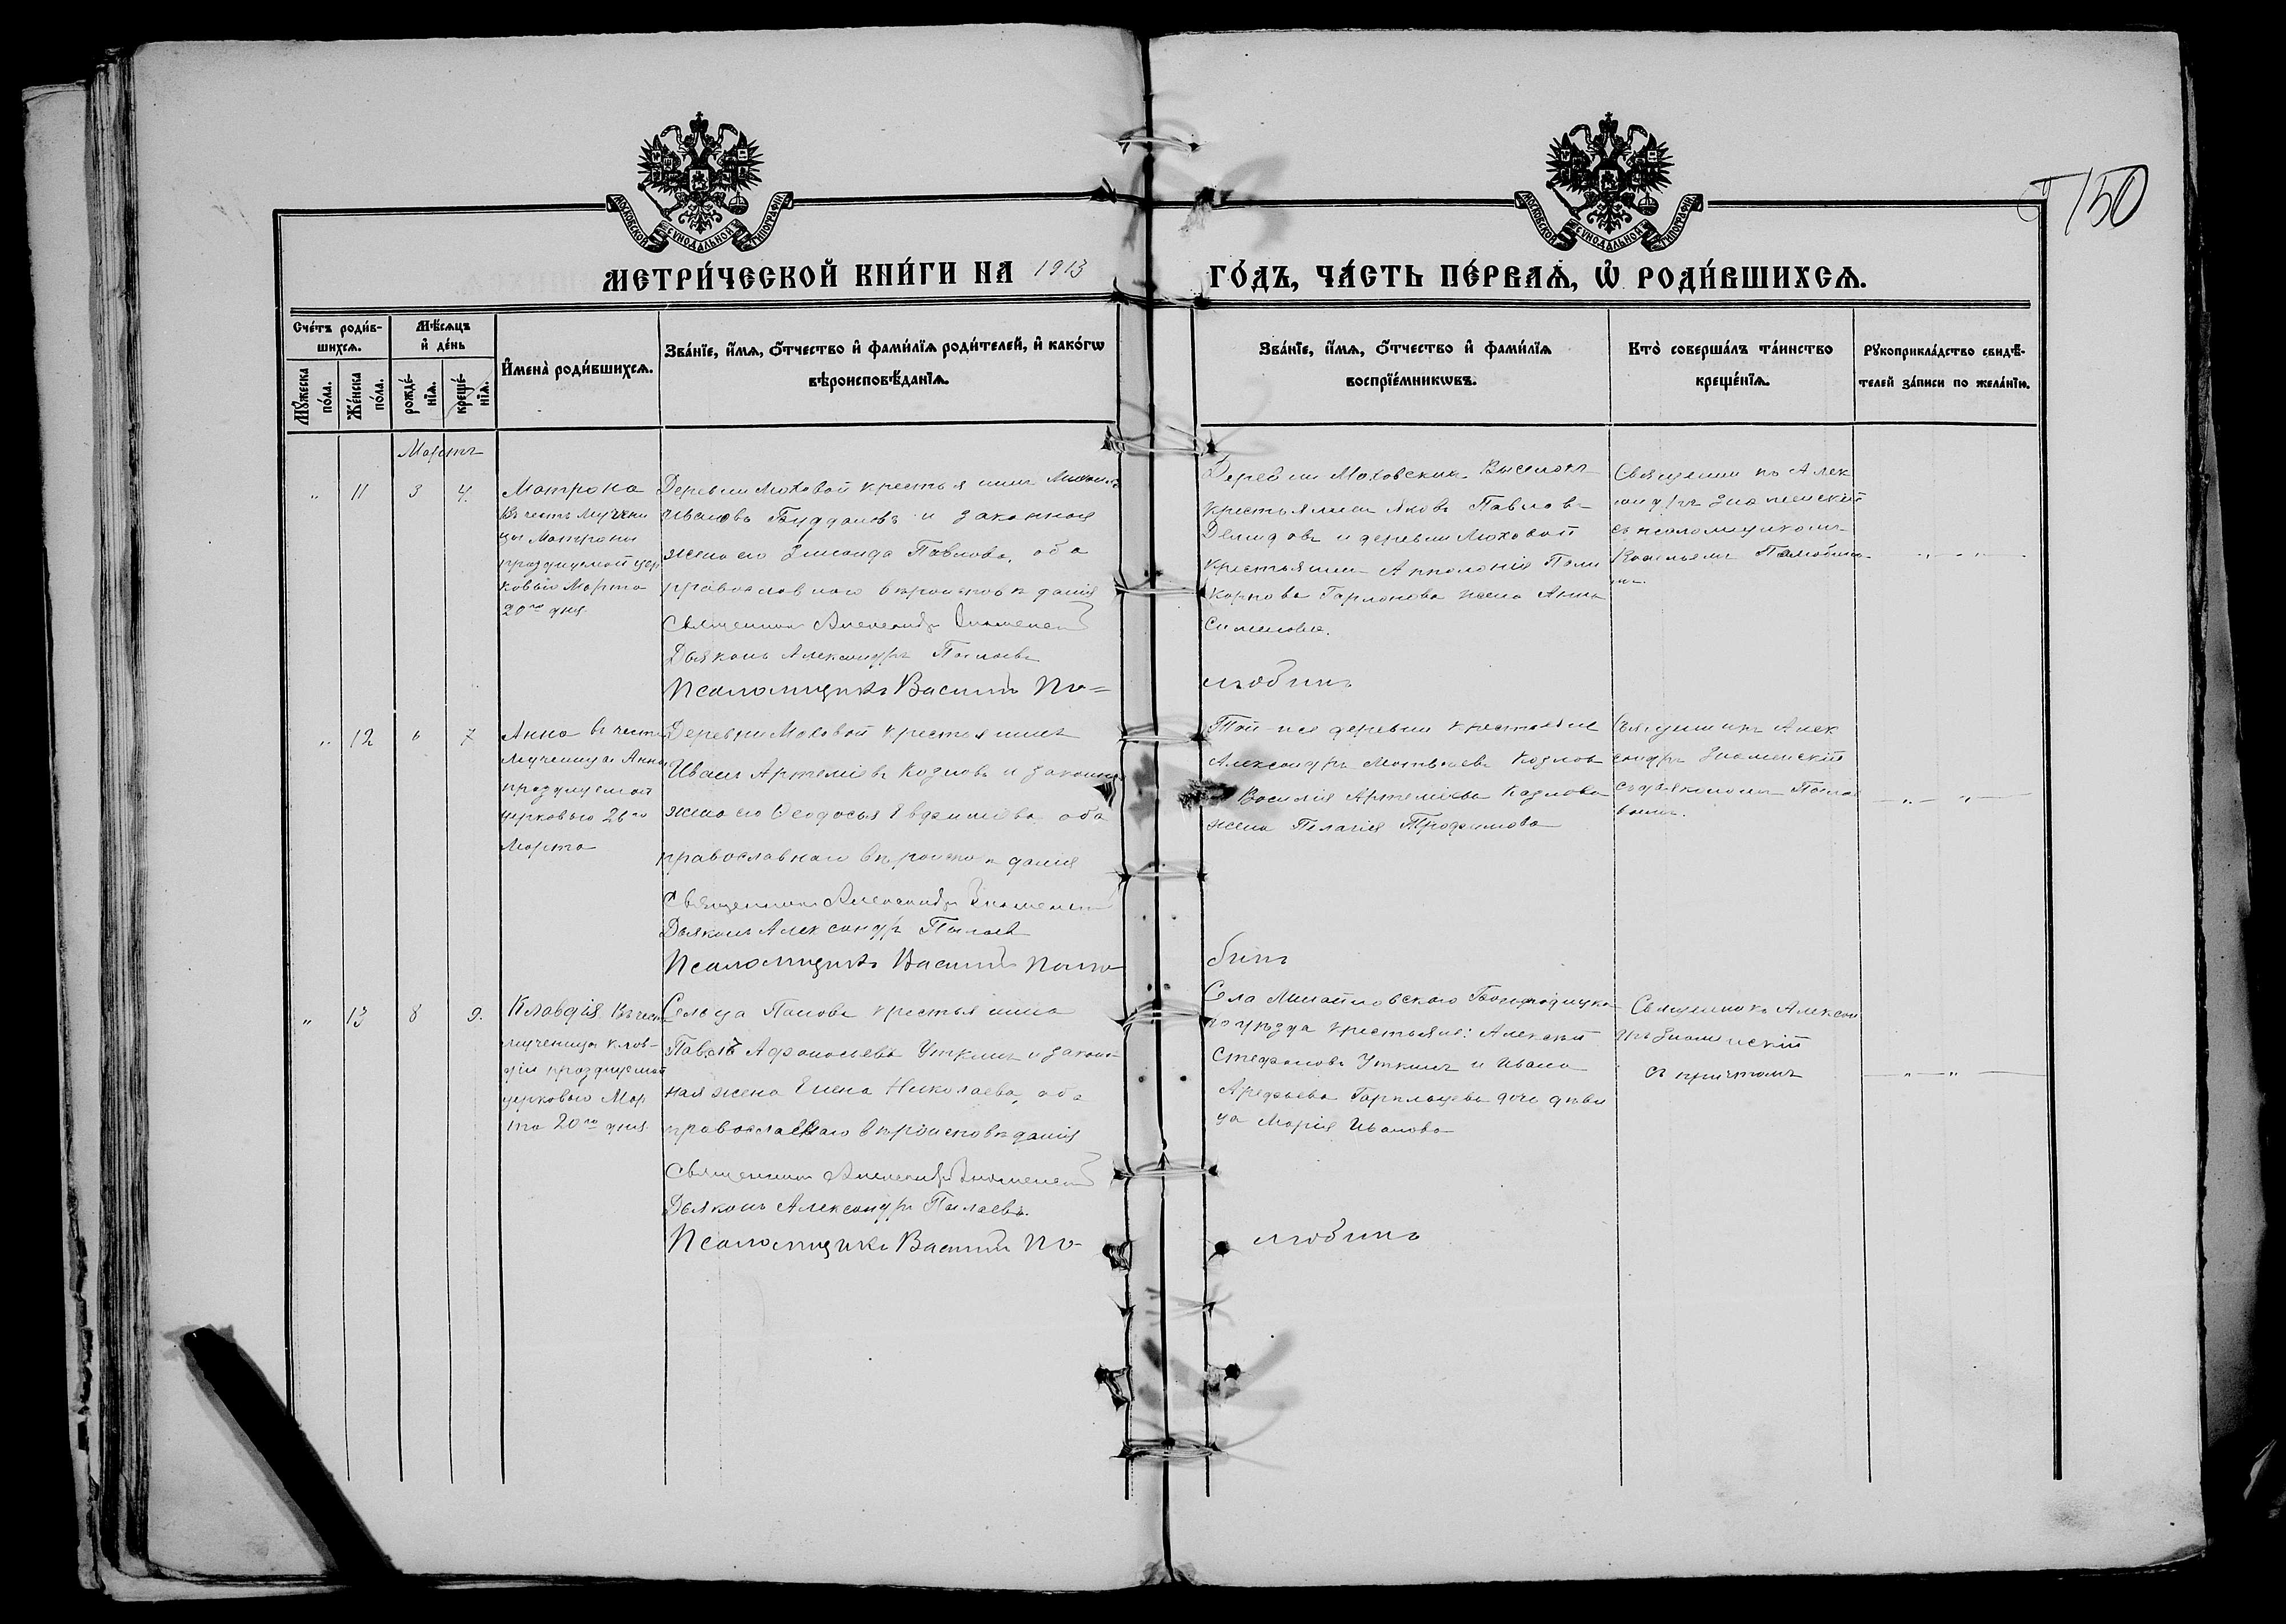 150
МОСКОВСКОЙ СУНОДАЛЬНОЙ ТИПОГРАФІИ
МОСКОВСКОЙ СУНОДАЛЬНОЙ ТИПОГРАФІИ
МЕТРИ́ЧЕСКОЙ КНИ́ГИ НА 1913
ГО́ДЪ, ЧА́СТЬ ПЕ́РВАѦ, Ѡ҆ РОДИ́ВШИХСѦ.
Сче́тъ роди́в-
шихсѧ.
Мѣ́сѧцъ
и҆ де́нь
Мꙋ́жеска
по́ла.
Же́нска
по́ла.
рожде́-
нїѧ.
креще́-
нїѧ.
И҆мена̀ роди́вшихсѧ.
Зва́нїе, и҆́мѧ, ѻ҆́тчество и҆ фами́лїѧ роди́телей, и҆ како́гѡ
вѣроисповѣ́данїѧ.
Зва́нїе, и҆́мѧ, ѻ҆́тчество и҆ фами́лїѧ
воспрїе́мникѡвъ.
Кто̀ соверша́лъ та́инство
креще́нїѧ.
Рꙋкоприкла́дство свидѣ́-
телей за́писи по жела́нїю.
Мартъ
" 11 3 4.
Матрона
Въ честь мучени
цы Матроны
празднуемой цер
ковью Марта
20го дня
Деревни Моховой крестьянинъ
Ивановъ и законная
жена его Павлова, оба
православнаго вѣроисповѣданія
Священникъ Александръ Знаменскій
Дьяконъ Александръ
Псаломщикъ Василій По=
Деревни Моховскихъ Выселокъ
крестьянинъ Яковъ Павловъ
Демидовъ и деревни Моховой
крестьянина Апполонія Поли
карпова жена Анна
Симеонова.
любинъ
Священникъ Алек
сандръ Знаменскій
съ псаломщикомъ
Васильемъ
" "
" 12 6 7
Анна въ честь
мученицы Анны
празднуемой
церковью 26го
Марта
Деревни Моховой крестьянинъ
Иванъ Артеміевъ Козловъ и законная
жена его Ѳеодосья Евфиміева оба
православнаго вѣроисповѣданія
Священникъ Александръ Знаменскій
Дьяконъ Александръ
Псаломщикъ Василій Полю
Той-же деревни крестьяне
Александръ Матвѣевъ Козловъ
Василія Артеміева Козлова
жена Пелагія Трофимова
бинъ
Священникъ Алек
сандръ Знаменскій
съ дьякономъ
" "
" 13 8 9.
Клавдія. Въ честь
мученицы Клав-
діи празднуемой
церковью Мар
та 20го дня
Сельца Панова крестьянинъ
Павелъ Афонасьевъ Уткинъ и закон-
ная жена Елена Николаева, оба
православнаго вѣроисповѣданія
Священникъ Александръ Знаменскій
Дьяконъ Александръ
Псаломщикъ Василій По-
Села Михайловскаго Богородицка
го уѣзда крестьяне: Алексѣй
Стефановъ Уткинъ и Ивана
Арефьева дочь дѣви
ца Марія Иванова
любинъ
Священникъ Алексан
дръ Знаменскій
съ причтомъ
" "